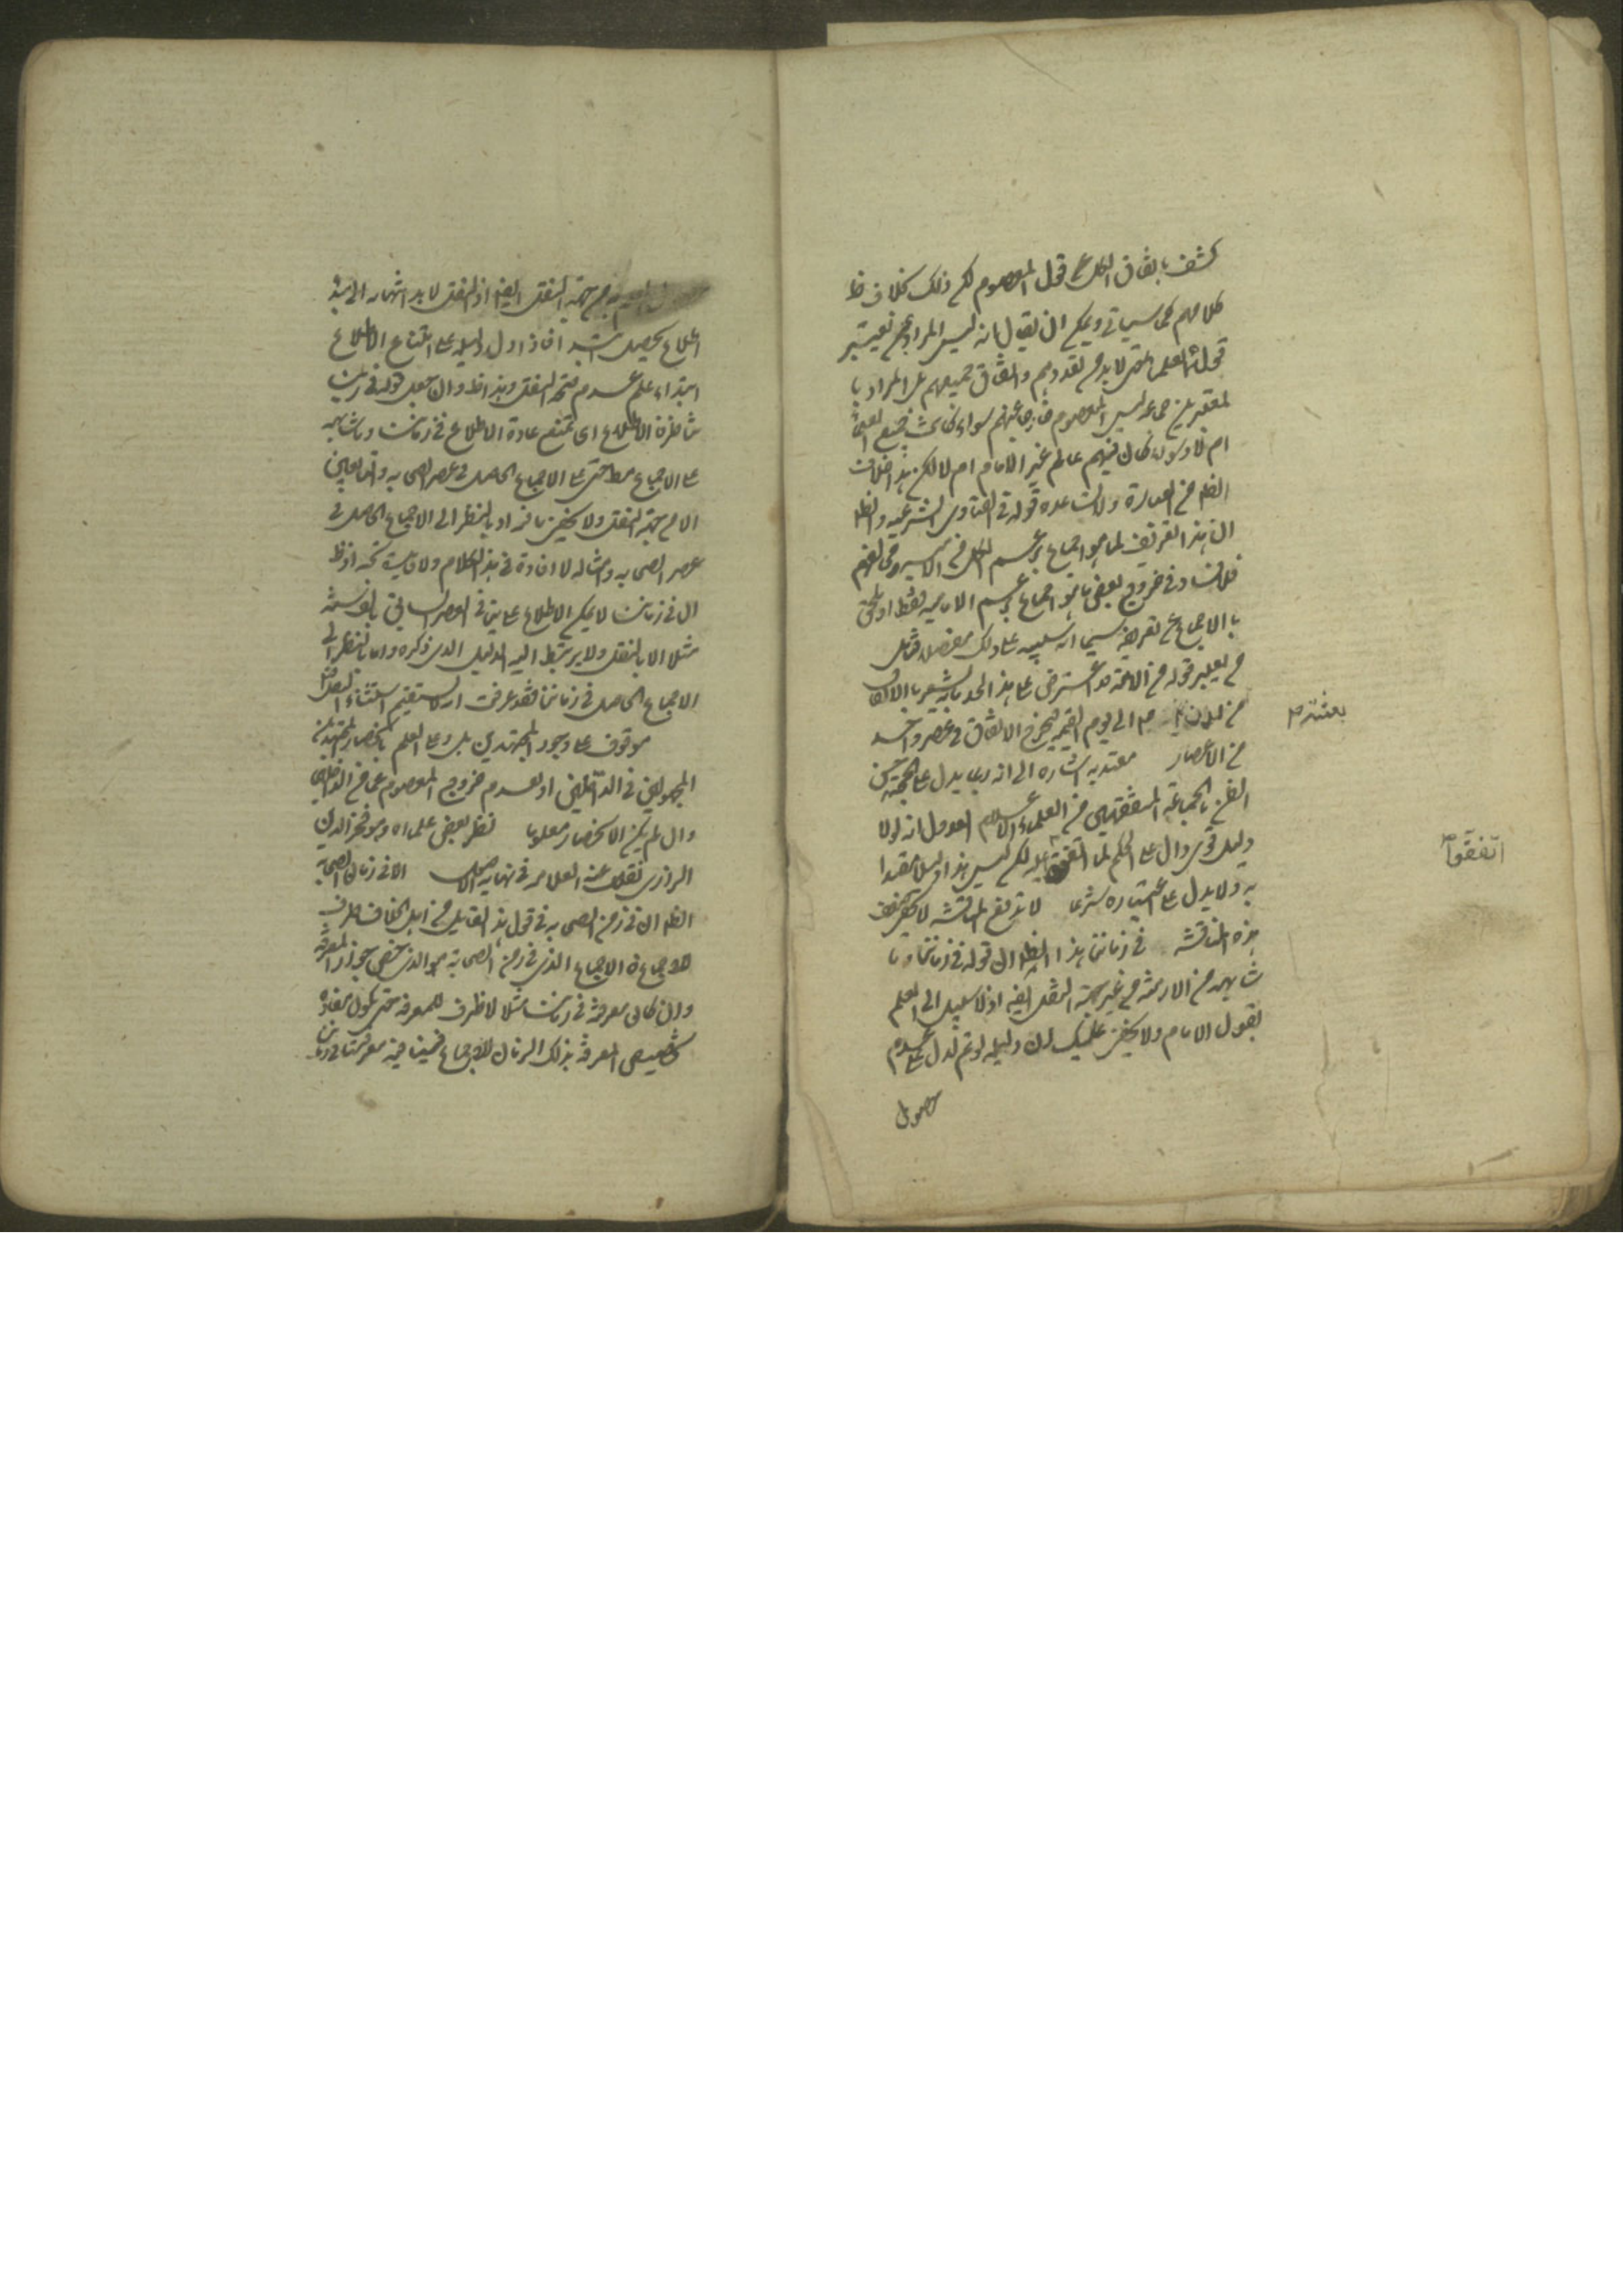 كشف باتفاق الكل عن قول المعصوم لكن ذلك خلاف ظ
كلامهم كما سياتي ويمكن ان يقال انه ليس المراد من تعيتبر
قوله العلماء حتى لابد من تعددهم واتفاق جميعهم بل المراد با
لمعتبرين جماعة ليس المعصوم خارجا عنهم سواء كانت جميع العلماء
ام لا وسواء كان فيهم عالم غير الامام ام لا لكن هذا خلاف
الظاهر من العبارة ولا يساعده قوله في الفتاوى الشرعية والظاهر
ان هذا التعريف لما هو اجماع بزعم الكل من الامامية ومخالفيهم
فلا فساد في خروج بعض ما هو اجماع بزعم الامامية فقط او يلحق
بالاجماع من تعريفه سيما انه سينبه على ذلك مفصلا فتامل
من يعتبر قوله من الامة قد اعترض على هذا الحد بانه يشعر بالاتفاق
من لدن بعثته ص الى يوم القيمة فيخرج الاتفاق في عصر واحد
من الاعصار معتد به اشارة الى انه ربما يدل على حجيته حسن
الظن بالجماعة المتفقين من العلماء الاعلام العدول انه لولا
دليل قوي دال على الحكم لما اتفقوا عليه لكن ليس هذا دليلا معتدا
به ولا يدل على اعتباره شرعا لا تدفع المناقشة لا يخفى ضعف
هذه المناقشة في زماننا هذا الظاهر ان قوله في زماننا وما
شابهه من الازمنة من غير جهة النقل لغو اذ لا سبيل الى العلم
بقول الامام ولا يخفى عليك ان دليله لو تم لدل على عدم
حصول
من جهة النقل ايضا اذ النقل لابد انتهائه الى مبدء
اطلاع يحصل فاذا دل دليله على امتناع الاطلاع
ابتداء علم عدم صحة النقل وهذا ظ وان جعل قوله في زماننا
ظرفا للاطلاع اي يمتنع عادة الاطلاع في زماننا وما شابهه
على الاجماع مط حتى على الاجماع الحاصل في عصر الصحابة والتابعين
الا من جهة النقل ولا يخفى ما فيه اذ بالنظر الى الاجماع الحاصل في
عصر الصحابة وامثاله لا افادة في هذا الكلام ولا فائدة تحته اذ ظ
ان في زماننا لا يمكن الاطلاع على شيء في العصر السابق بالف سنة
مثلا الا بالنقل ولا يرتبط اليه الدليل الذي ذكره واما بالنظر الى
الاجماع الحاصل في زماننا فقد عرفت انه لا يستقيم استثناء النقل
موقوف على وجود المجتهدين بل وعلى العلم بانحصار المجتهدين
المجهولين في الداخلين او بعدم خروج المعصوم عما من الداخلين
وان لم يكن الانحصار معلوما نظر بعض علماء وهو فخر الدين
الرازي نقل عنه العلامه في نهاية الاصول الا في زمان الصحابة
الظاهر ان في زمن الصحابة في قول هذا القائل من اهل الخلاف ظرف
للاجماع فالاجماع الذي في زمن الصحابة هو الذي خص بجواز المعرفة
وان كان معرفته في زماننا مثلا لا ظرف للمعرفة حتى يكون مفاده
تخصيص المعرفة بذلك الزمان للاجماع
بعثته ص
اتفقوا